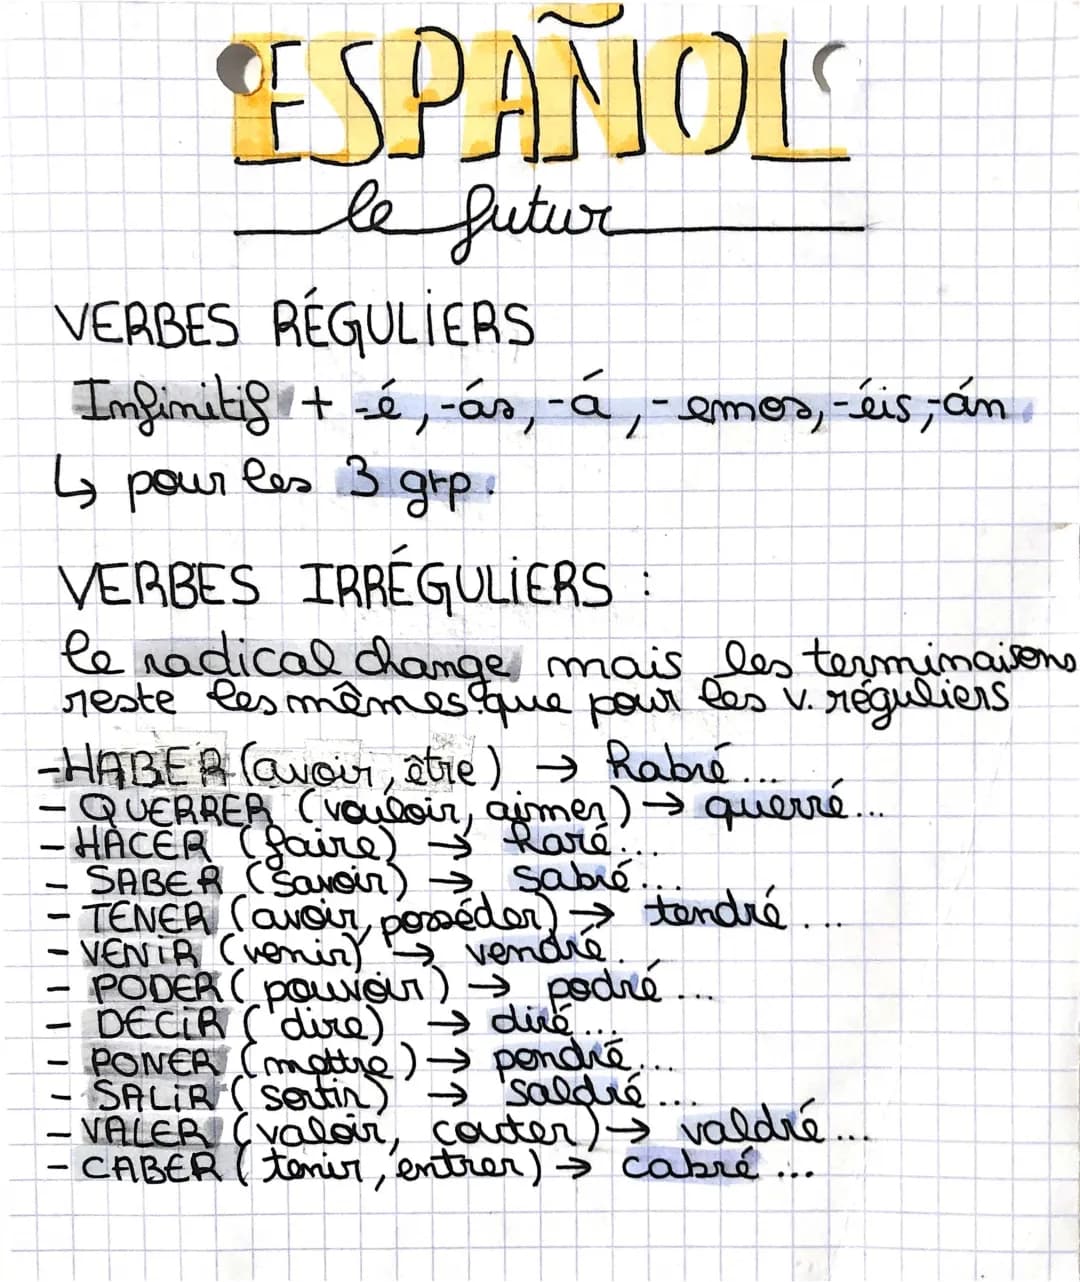 ESPAÑOL
le futur
VERBES RÉGULIERS
Infinitif + -é, -ás, -á, -emos, -éis, -án
↳ pour les 3 grp.
VERBES IRRÉGULIERS :
le radical change mais les terminaisons
reste les mêmes que pour les v. réguliers
-HABER (avoir, être) → habré...
- QUERRER (vouloir, aimer) → querré...
- HACER (faire) → haré...
- SABER (savoir) → sabré...
- TENER (avoir, posséder) → tendré...
- VENIR (venir) → vendré.
- PODER (pouvoir) → podré...
- DECIR (dire) → diré...
- PONER (mettre) → pondré...
- SALIR (sortir) → saldré...
- VALER (valoir, couter) → valdré...
- CABER (tenir, entrer) → cabré...